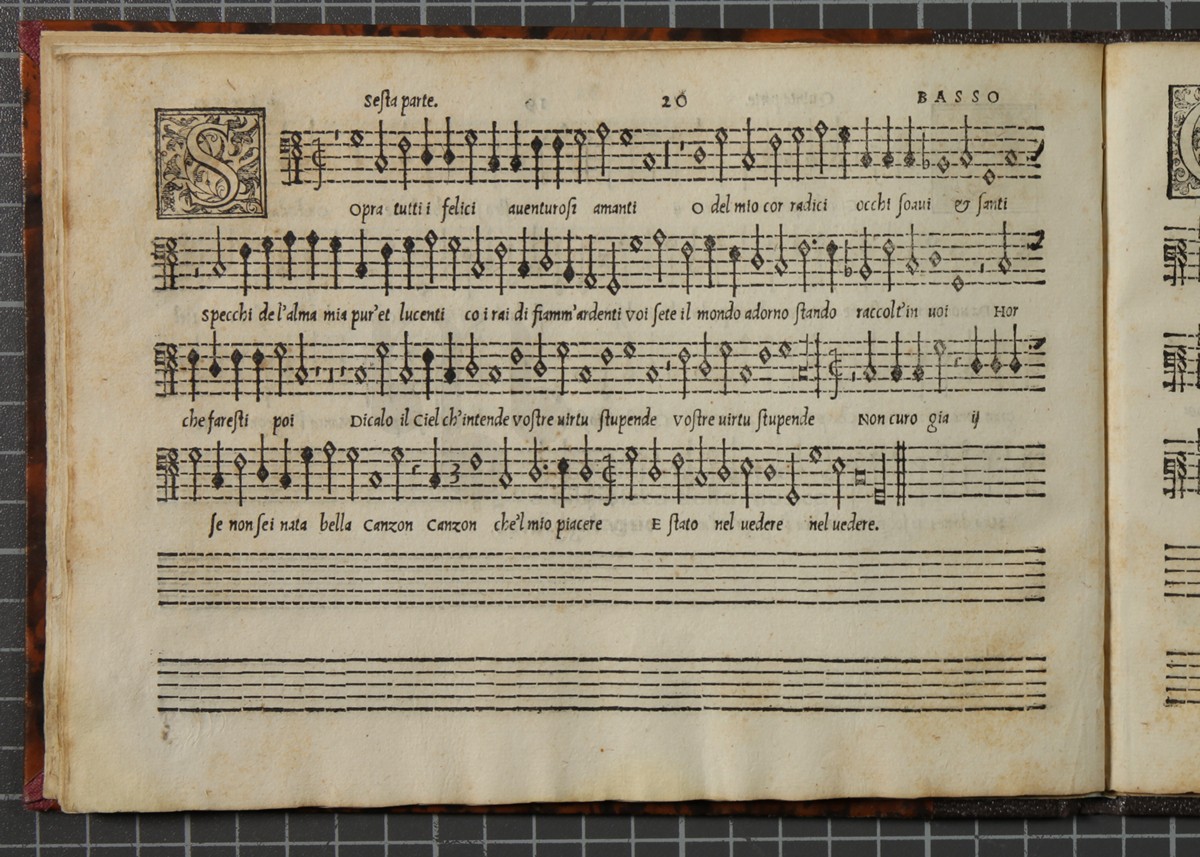 Sesta parte. 20 BASSO
SOpra tutti i felici auenturosi amanti O del mio cor radici occhi soaui & santi
Specchi de l'alma mia pur'et lucenti co i rai di fiamm'ardenti voi sete il mondo adorno stando raccolt'in uoi Hor
che faresti poi Dicalo il Ciel ch'intende vostre uirtu stupende vostre uirtu stupende Non curo gia ij
3
se non sei nata bella Canzon Canzon che'l mio piacere E stato nel uedere nel uedere.